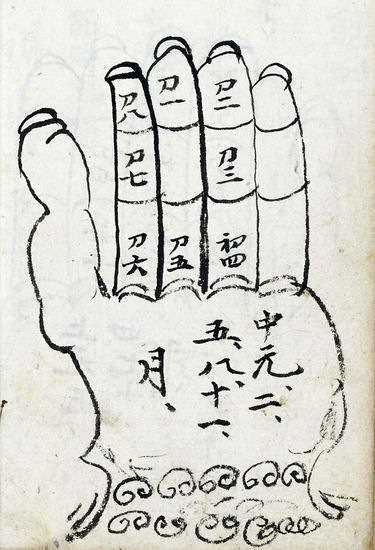 刀八
刀一
刀二
刀七
刀三
刀六
刀五
初四
中元、二、
五、八、十一、
月、